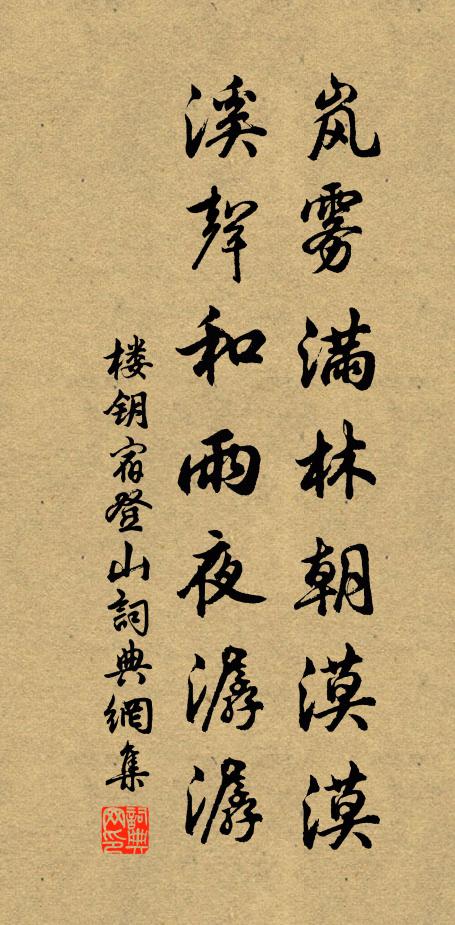 岚雾满林朝漠漠
溪声和雨夜潺潺
楼钥宿登山詞典網集
詞典网印